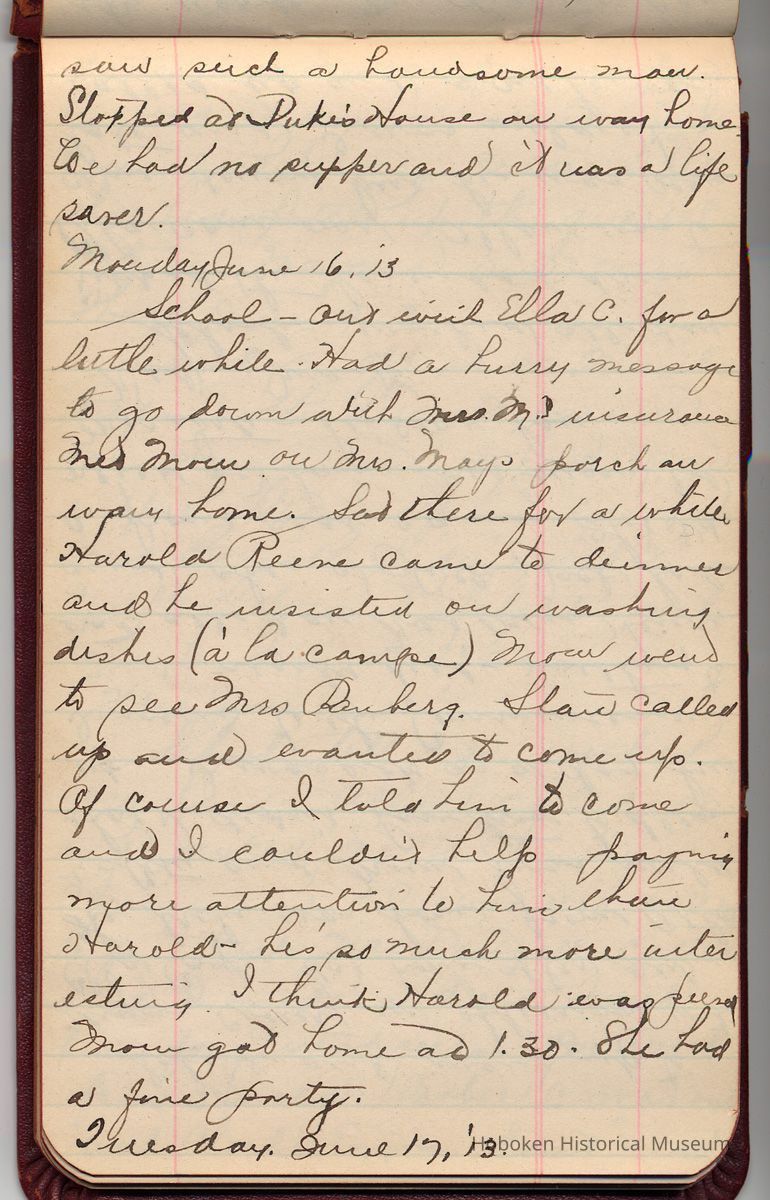 saw such a handsome man.
Stopped at Duke's House on way home.
We had no supper and it was a life
saver.
Monday June 16, '13
School - out with Ella C. for a
little while. Had a hurry message
to go down with Mrs. M's insurance
Met Mom on Mrs. Mays porch on
way home. Sat there for a while.
Harold Reene came to dinner
and he insisted on washing
dishes (à la campe) Mom went
to see Mrs Renberg. Stan called
up and wanted to come up.
Of course I told him to come
and I couldn't help paying
more attention to him than
Harold - he's so much more inter
esting. I think Harold was peeved
Mom got home at 1.30. She had
a fine party.
Tuesday. June 17, '13.
Hoboken Historical Museum